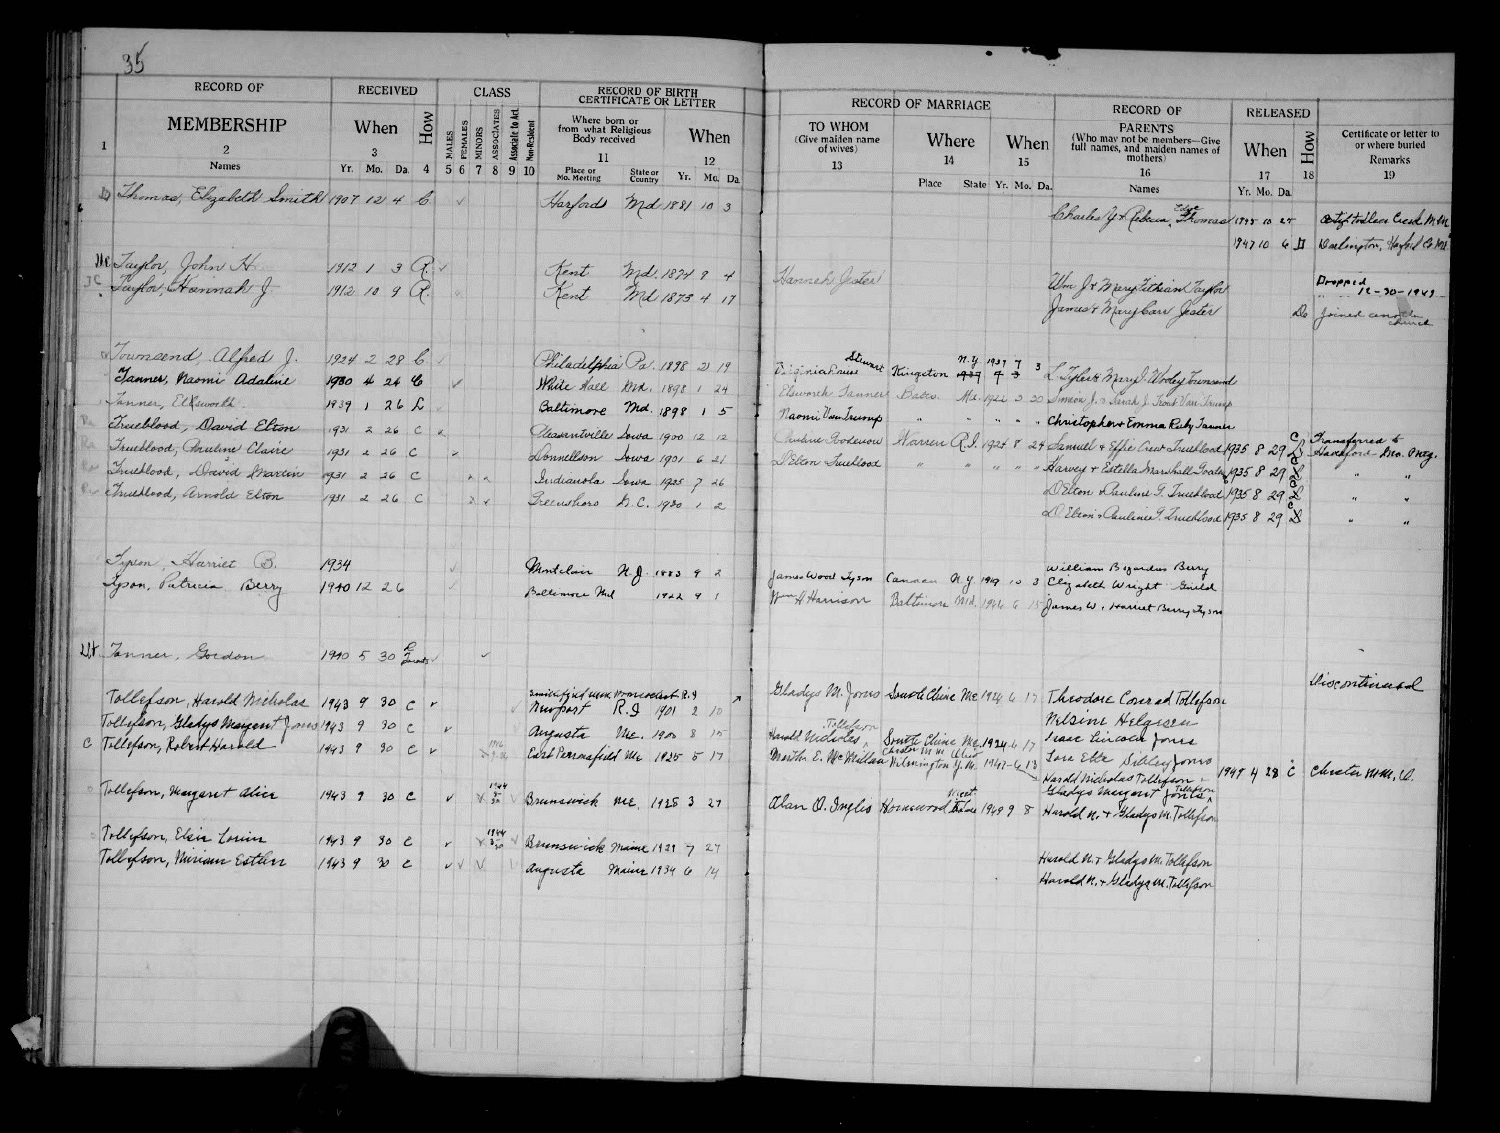 35
RECORD OF RECEIVED CLASS RECORD OF BIRTH
CERTIFICATE OR LETTER
MEMBERSHIP When How MALES FEMALES MINORS ASSOCIATES Associate to Act. Non-Resident
Where born or
from what Religious
Body received When
1 2 3 4 5 6 7 8 9 10 11 12
Names Yr. Mo. Da. Place or
Mo. Meeting State or
Country Yr. Mo. Da.
Thomas, Elizabeth Smith 1907 12 4 C Harford Md 1881 10 3
Taylor, John H. 1912 1 3 R. Kent Md. 1874 9 4
Taylor, Hannah J. 1912 10 9 R. Kent Md 1873 4 17
Townsend, Alfred J. 1924 2 28 C Philadelphia Pa. 1898 2 19
Tanner, Naomi Adaline 1930 4 24 C White Hall Md. 1898 1 24
Tanner, Ellsworth 1939 1 26 L Baltimore Md. 1898 1 5
Trueblood, David Elton 1931 2 26 C Pleasantville Iowa 1900 12 12
Trueblood, Pauline Claire 1931 2 26 C Donnellson Iowa 1901 6 21
Trueblood, David Martin 1931 2 26 C Indianola Iowa 1925 7 26
Trueblood, Arnold Elton 1931 2 26 C Greensboro N.C. 1930 1 2
Tyson, Harriet B. 1934 Montclair N.J. 1883 9 2
Tyson, Patricia Berry 1940 12 26 Baltimore Md 1922 9 1
Tanner, Gordon 1940 5 30
Tollefson, Harold Nicholas 1943 9 30 C Newport R.I 1901 2 10
Tollefson, Gladys Margaret Jones 1943 9 30 C Augusta Me. 1900 8 15
C Tollefson, Robert Harold 1943 9 30 C East Parsonsfield Me 1925 5 17
Tollefson, Margaret Alice 1943 9 30 C 1944 Brunswick Me. 1928 3 27
Tollefson, Elsie Louise 1943 9 30 C 1944 Brunswick Maine 1929 7 27
Tollefson, Miriam Esther 1943 9 30 C Augusta Maine 1934 6 14
RECORD OF MARRIAGE RECORD OF
PARENTS RELEASED
TO WHOM
(Give maiden name
of wives) Where When (Who may not be members—Give
full names, and maiden names of
mothers) When How Certificate or letter to
or where buried
Remarks
13 14 15 16 17 18 19
Place State Yr. Mo. Da. Names Yr. Mo. Da.
Charles Y + Rebecca Edge Thomas
1947 10 6 D Darlington, Harford Co Md
Hannah Jester Wm J + Mary Titsian Taylor Dropped
12-30-1943
James + Mary Carr Jester joined another
church
Virginia Stewart Kingston N.Y 1937 7 3 L Tyler + Mary J. Wooley Townsend
Elsworth Tanner Bates Md. 1922 Simeon J. + Sarah J. Trout Van Trump
Naomi Van Trump " " " " Christopher + Emma Ruby Tanner
Pauline Goodenow Warren R.I. 1924 8 24 Samuel + Effie Crew Trueblood 1935 8 29 Transferred to
Haverford Mo. Mtg.
D Elton Trueblood " " " " Harvey + Estella Marshall 1935 8 29
D Elton + Pauline G. Trueblood 1935 8 29 " "
D Elton + Pauline G. Trueblood 1935 8 29 " "
James Wood Tyson Canaan N.Y 10 3 William Bogardus Berry
Elizabeth Wright Guild
Wm H Harrison Baltimore Md. 1946 6 15 James W. Harriet Berry Tyson
Discontinued
Gladys M. Jones South China Me 1924 6 17 Theodore Conrad Tollefson
Nelsine Helgesen
Harold Nicholas Tollefson South China Me. 1924 6 17 Isaac Lincoln Jones
Sara Etta Sibley Jones
Martha E. McMillan Chester M M Ohio
Wilmington Y.M. 1947-6 13 Harold Nicholas Tollefson
Gladys Margaret Jones Tollefson 1949 4 28 C Chester M M, O.
Alan O. Inglis Homewood 1949 9 8 Harold N. + Gladys M. Tollefson
Harold N. + Gladys M. Tollefson
Harold N. + Gladys M. Tollefson